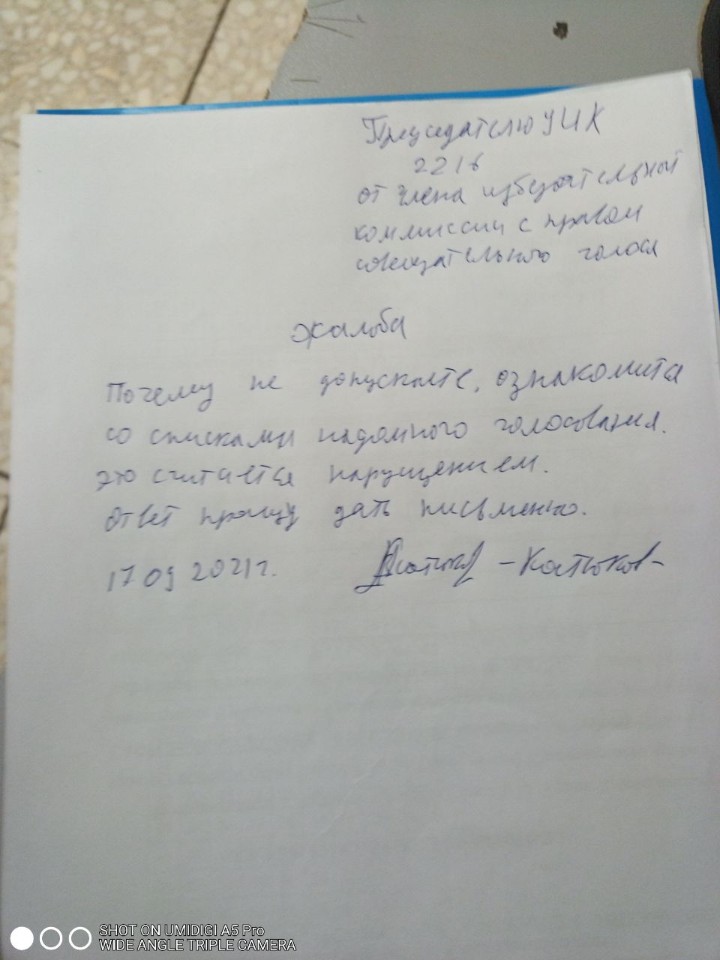 Председателю УИК
2216
от члена избирательной
коммиссии с правом
совещательного голоса
Жалоба
Почему не допускаете, ознакомита
со списками надомного голосования.
это считается нарушением.
ответ прошу дать письменно.
17 09 2021 г. -Катюков-
SHOT ON UMIDIGI A5 Pro
WIDE ANGLE TRIPLE CAMERA